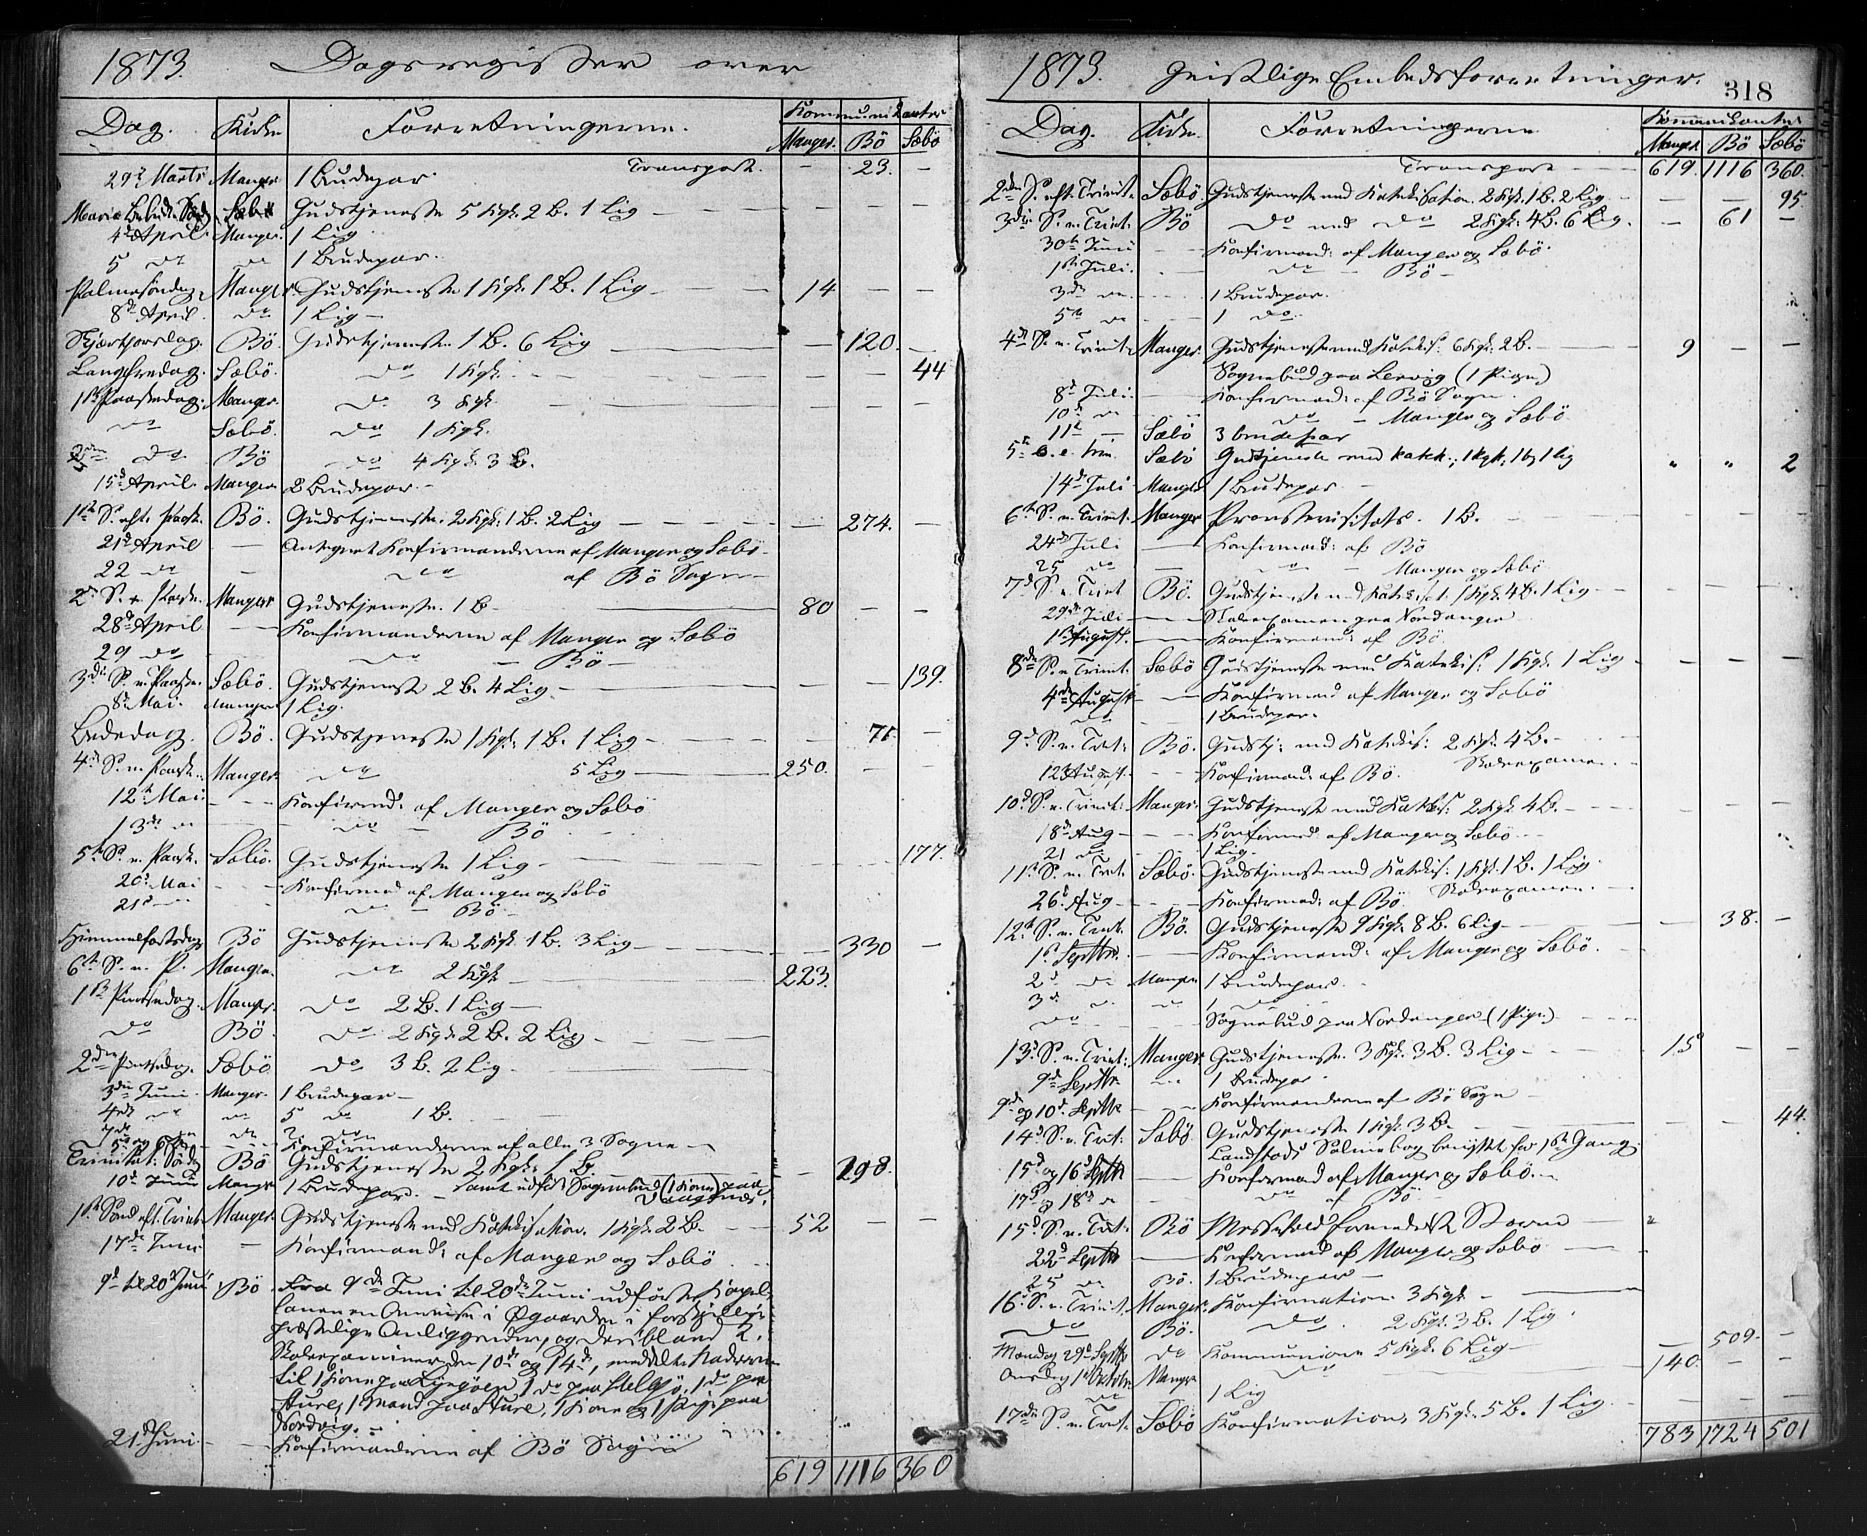 1873. Dagsregister over
Dag. Kirke Forretningerne. Kommunikanter
Manger. Bö Sæbö
Transport. — 23. —
29d Marts Manger 1 Brudepar.
Mariæ Bebud. Søndag Sæbö Gudstjeneste 5 Kgk. 2 B. 1 Lig — — —
4d April Manger. 1 Lig
5 do do 1 Brudepar.
Palmesöndag Manger Gudstjeneste 1 Kgk. 1 B. 1 Lig — 14 — —
8d April. do 1 Lig —
Skjærtorsdag. Bö. Gudstjeneste 1 B. 6 Lig — — 120. —
Langfredag. Sæbö. do 1 Kgk. — — 44
1ste Paaskedag. Manger. do 3 Kgk — — —
do Sæbö. do 1 Kgk.
2den do Bö do 4 Kgk. 3 B.
15d April. Manger 2 Brudepar. —
1ste S. eft. Paask. Bö. Gudstjeneste. 2 Kgk. 1 B. 2 Lig — — 274. —
21d April — Antegnet Konfirmanderne af Manger og Sæbö.
22 do — do af Bö Sogn —
2d S. e. Paask. Manger Gudstjeneste. 1 B — 80 — —
28d April — Konfirmanderne af Manger og Sæbö
29 do — do — Bö —
3die S. e. Paask. Sæbö. Gudstjeneste 2 B. 4 Lig — — — 139.
8d Mai. Manger 1 Lig.
Bededag. Bö. Gudstjeneste 1 Kgk. 1 B. 1 Lig — — 71 —
4d S. e. Paask. Manger do 5 Lig — 250. — —
12d Mai. — Konfirmd: af Manger og Sæbö
13d do — do — Bö
5te S. e. Paask. Sæbö. Gudstjeneste 1 Lig — — — 177.
20d Mai — Konfirmd af Manger og Sæbö
21d do do — Bö —
Himmelfartsdag Bö Gudstjeneste 2 Kgk. 1 B. 3 Lig — — 330 —
6te S. e. P. Manger. do 2 Kgk — 223.
1ste Pintsedag. Manger. do 2 B. 1 Lig —
do Bö. do 2 Kgk. 2 B. 2 Lig —
2den Pintsedag. Sæbö do 3 B. 2 Lig —
3die Juni. Manger. 1 Brudepar —
4de do do 5 do 1 B.
do 2 do
5te og 6te do Konfirmanderne af alle 3 Sogne —
Trinitat: Søndag Bö Gudstjeneste 2 Kgk. 1 B. — — 298.
10d Juni Manger 1 Brudepar. — Samt udført Sognebud (1 Kone) paa
1ste Sønd. eft. Trinit. Manger. Gudstjeneste med Katekisation. 1 Kgk. 2 B. — 52 — —
17de Juni — Konfirmand: af Manger og Sæbö.
9d til 20d Juni Bö Fra 9de Juni til 20de Juni udførte Kapel-
lanen Anneise i Øgaarden i forskjellige
præstelige Anliggender, og deriblandt 2
Skoleexaminer den 10d og 14d, meddelte Nadveren
til 1 Kone paa Lyngöen, 1 do paa Hellesö, 1 do paa
Sture, 1 Mand paa Sture, 1 Kone og 1 Pige paa
Nordvig. —
21d Juni. — Konfirmanderne af Bö Sogn
619 1116 360
1873. Geistlige Embedsforretninger. 318
Dag. Kirke. Forretningerne Kommunikanter
Manger Bö Sæbö
Transport — 619. 1116 360.
2den S. eft. Trinit. Sæbö. Gudstjeneste med Katekisation. 2 Kgk. 1 B. 2 Lig — — — 95
3die S. e. Trinit. Bö do med do 2 Kgk. 4 B. 6 Lig. — 61 —
30te Juni — Konfirmand: af Manger og Sæbö.
1ste Juli. — do — Bö —
3de do — 1 Brudepar.
5te do 1 do.
4de S. e. Trinit. Manger. Gudstjeneste med Katekis: 6 Kgk. 2 B. — 9 — —
Sognebud paa Lervig (1 Pige)
8d Juli. — Konfirmand: af Bö Sogn.
10d do do — Manger og Sæbö
11te — Sæbö 3 brudepar
5te S. e. trin. Sæbö Gudstjeneste med katek., 1 kgk, 1 b, 1 lig " " 2
14d Juli Manger 1 Brudepar —
6te S. e. Trinit. Manger Provstevisitats. 1 B. —
24de Juli — Konfirmand: af Bö
25 do — do — Manger og Sæbö
7d S. e. Trinit Bö. Gudstjeneste med Katekisat. 1 Kgk. 4 B. 1 Lig — — —
29de Juli — Skoleexamen paa Nordanger
1ste August. — Konfirmand: af Bö.
8de S. e. Trinit. Sæbö Gudstjeneste med Katekis: 1 Kgk. 1 Lig — — —
4de August — Konfirmand af Manger og Sæbö
do — 1 Brudepar.
9d S. e. Trit: Bö. Gudstj: med Katekis: 2 Kgk. 4 B. —
12d August. — Konfirmand: af Bö. Skoleexamen
10d S. e. Trinit: Manger. Gudstjeneste med Katekis: 2 Kgk. 4 B. — — —
18d Aug — Konfirmd: af Manger og Sæbö —
21 do — 1 Lig —
11te S. e. Trit. Sæbö. Gudstjeneste med Katekis: 1 Kgk. 1 B. 1 Lig
26d Aug — Konfirmand: af Bö. Skoleexamen. —
12te S. e. Trit. Bö. Gudstjeneste 9 Kgk. 8 B. 6 Lig — — 38. —
1ste Septbr. — Konfirmand: af Manger og Sæbö. —
2d do Manger 1 Brudepar. —
3d do do 1 do
do — Sognebud paa Nordanger (1 Pige) —
13d S. e. Trinit: Manger Gudstjeneste. 3 Kgk. 3 B. 3 Lig — 15 — —
9d Septbr. do 1 Brudepar
9d og 10d Septbr — Konfirmanderne af Bö Sogn
14d S. e. Trit: Sæbö. Gudstjeneste 1 Kgk. 3 B — — — 44.
Landstads Salmebog benyttet for 1ste Gang.
15d og 16d Septbr Konfirmand af Manger og Sæbö. —
17d og 18d do do af Bö —
15d S. e. Trit: Bö Messefald formedelst Storm —
22d Septbr — Konfirmand af Manger og Sæbö —
25 do Bö. 1 Brudepar —
16d S. e. Trinit. Manger. Konfirmation 3 Kgk —
do Bö. do. 2 Kgk. 3 B. 1 Lig.
Mandag 29d Septbr do Kommunion 5 Kgk. 6 Lig — — 509. —
Onsdag 1ste Octobr Manger do — 140. — —
do 1 Lig
17de S. e. Trit. Sæbö Konfirmation, 3 Kgk. 5 B. 1 Lig — — —
783 1724 501